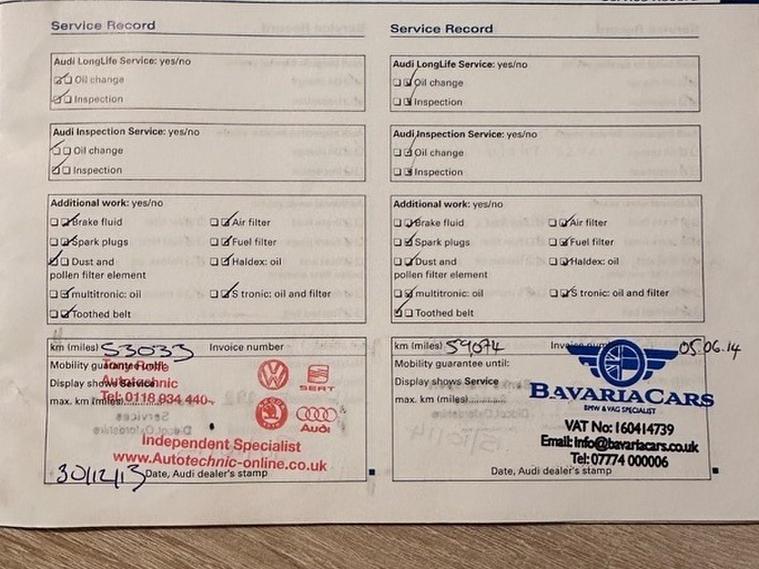 Service Record
Audi LongLife Service: yes/no
Oil change
Inspection
Audi Inspection Service: yes/no
Oil change
Inspection
Additional work: yes/no
Brake fluid
Air filter
Spark plugs
Fuel filter
Dust and
pollen filter element
Haldex: oil
multitronic: oil
S tronic: oil and filter
Toothed belt
km (miles) 53033 Invoice number
Mobility guarantee until:
Display shows Service
max. km (miles)
Tony Rolfe
Autotechnic
Tel: 0118 934 440
SEAT
Audi
Independent Specialist
www.Autotechnic-online.co.uk
30/12/13 Date, Audi dealer's stamp
Service Record
Audi LongLife Service: yes/no
Oil change
Inspection
Audi Inspection Service: yes/no
Oil change
Inspection
Additional work: yes/no
Brake fluid
Air filter
Spark plugs
Fuel filter
Dust and
pollen filter element
Haldex: oil
multitronic: oil
S tronic: oil and filter
Toothed belt
km (miles) 59074 Invoice number 05.06.14
Mobility guarantee until:
Display shows Service
max. km (miles)
BAVARIACARS
BMW & VAG SPECIALIST
VAT No: 160414739
Email: info@bavariacars.co.uk
Tel: 07774 000006
Date, Audi dealer's stamp